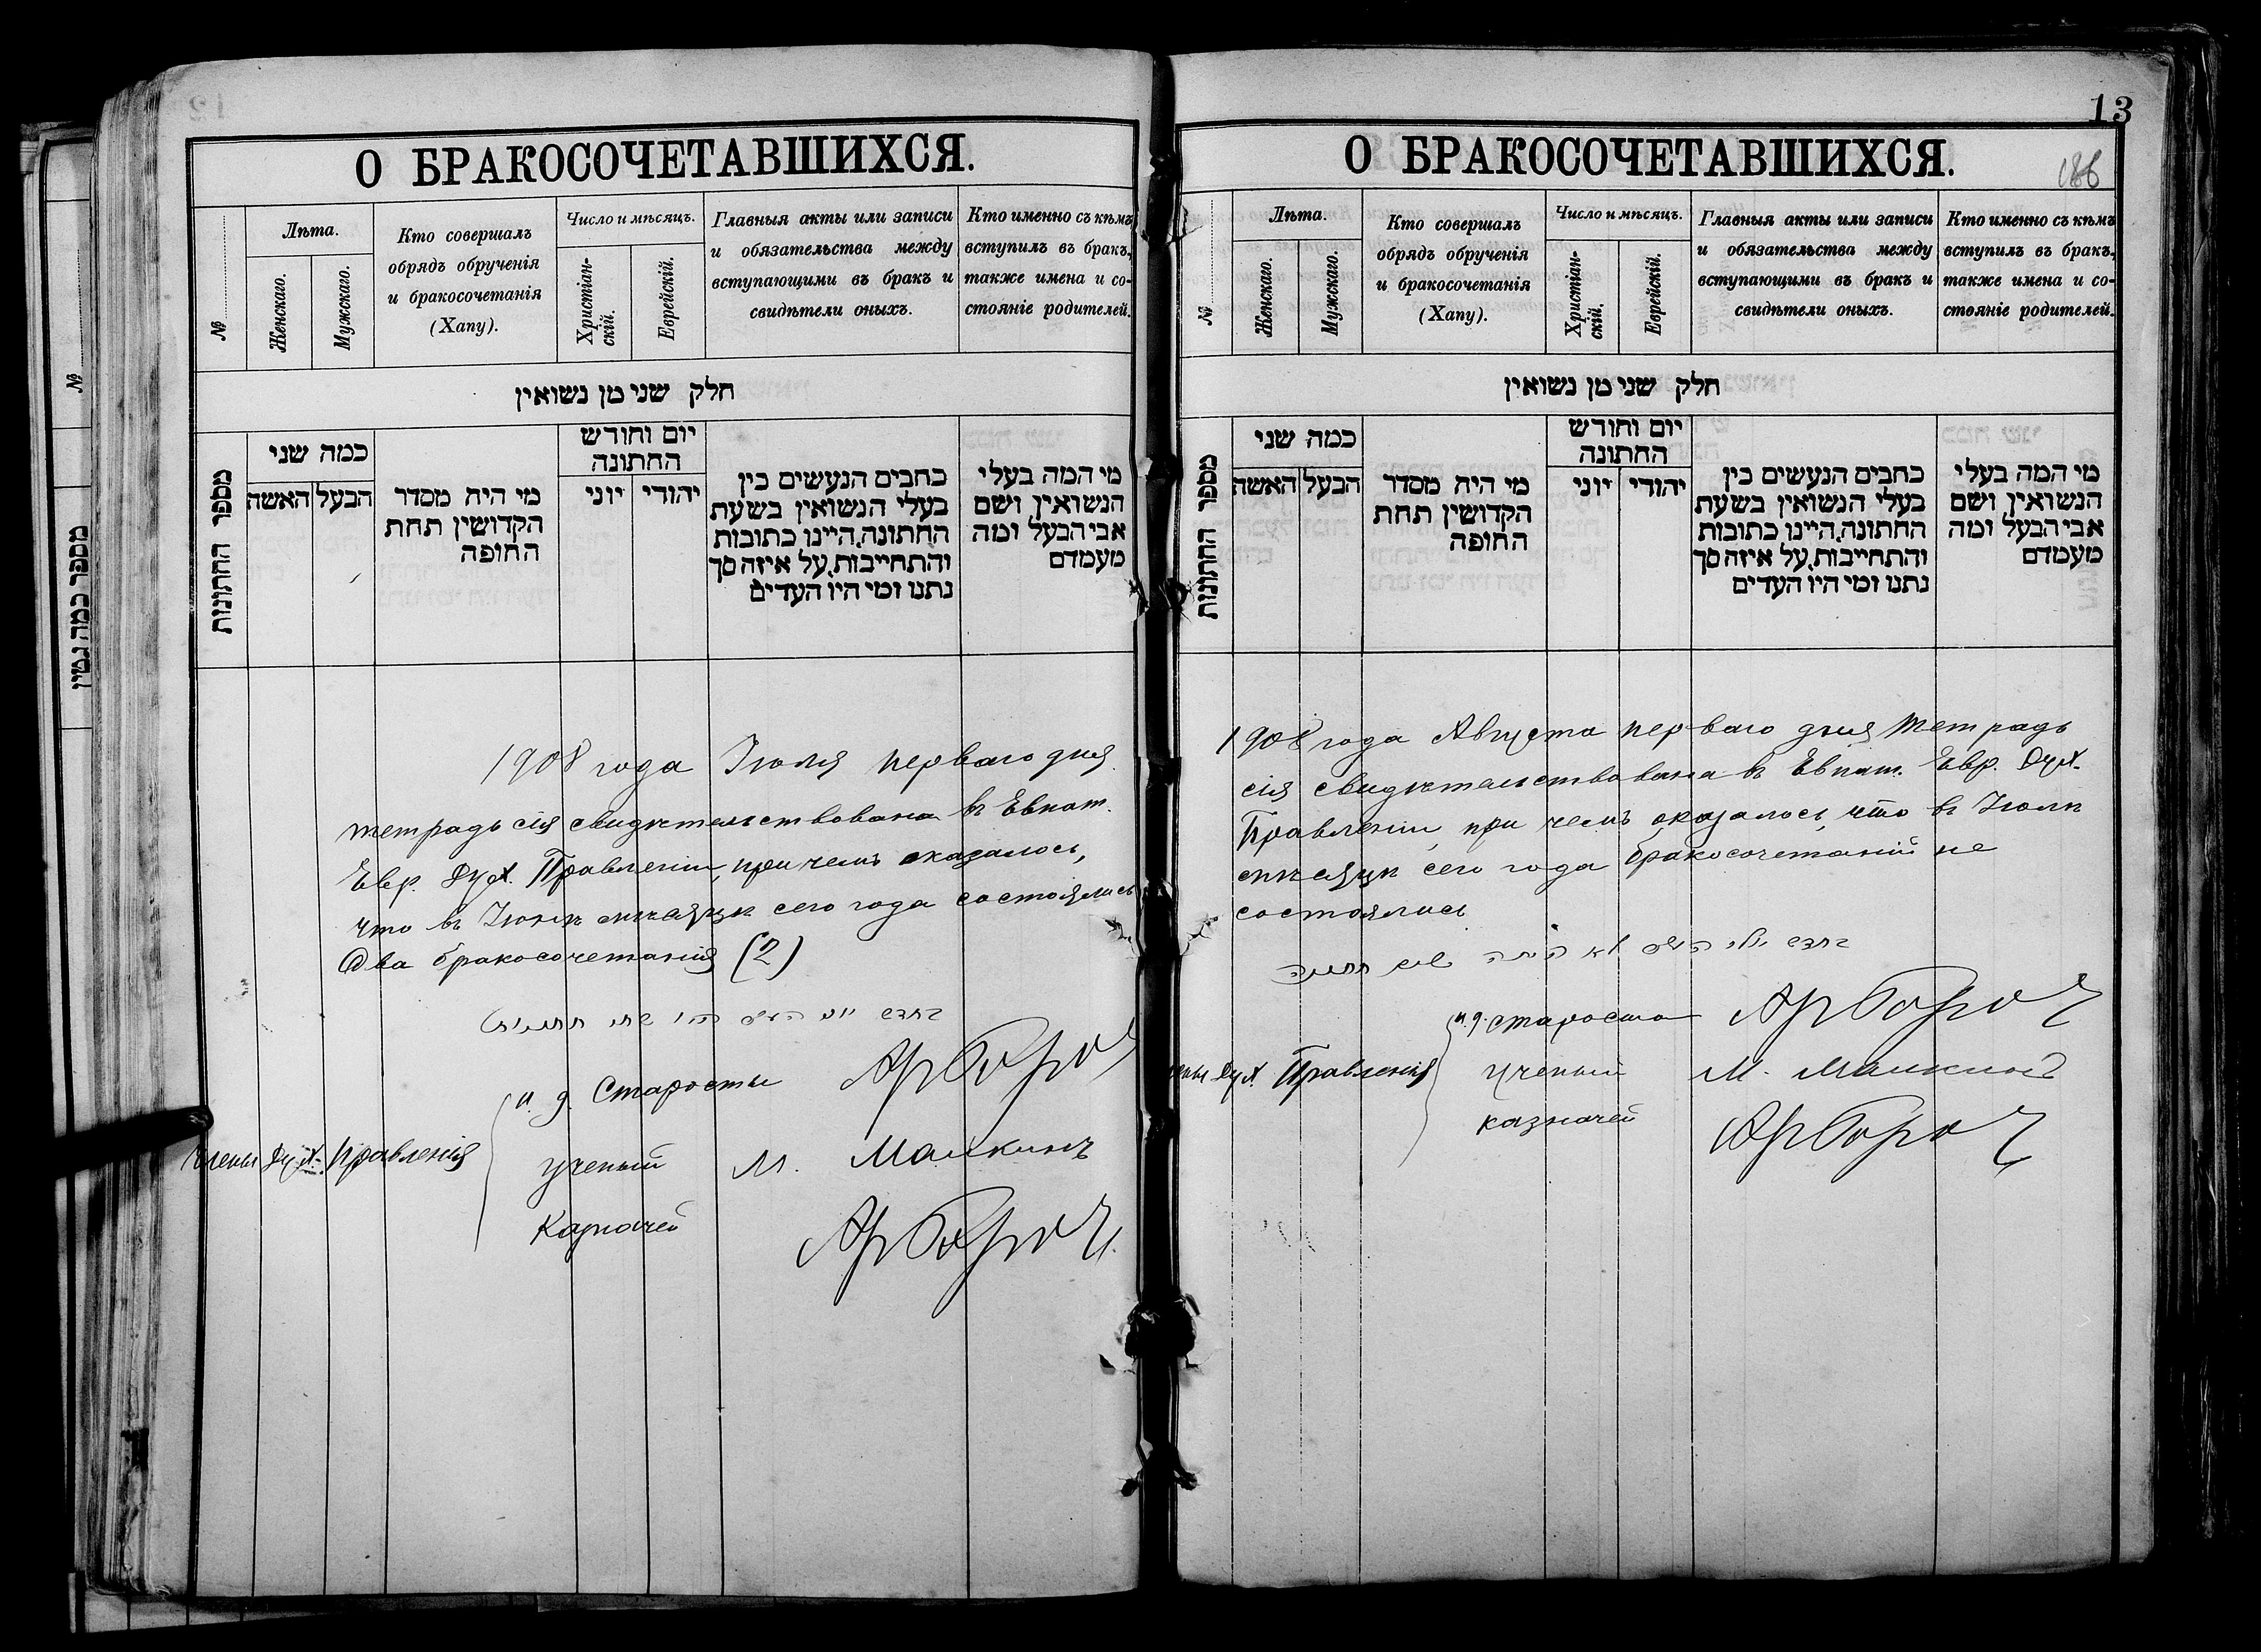 О БРАКОСОЧЕТАВШИХСЯ.
№
Лѣта.
Женскаго.
Мужскаго.
Кто совершалъ
обрядъ обрученія
и бракосочетанія
(Хапу).
Число и мѣсяцъ.
Христіан-
скій.
Еврейскій.
Главныя акты или записи
и обязательства между
вступающими въ бракъ и
свидѣтели оныхъ.
Кто именно съ кѣмъ
вступилъ въ бракъ,
также имена и со-
стояніе родителей.
חלק שני מן נשואין
מספר החתונות
כמה שני
הבעל האשה
מי היה מסדר
הקדושין תחת
החופה
יום וחודש
החתונה
יהודי יוני
כתבים הנעשים בין
בעלי הנשואין בשעת
החתונה, היינו כתובות
והתחייבות, על איזה סך
נתנו ומי היו העדים
מי המה בעלי
הנשואין, ושם
אבי הבעל ומה
מעמדם
1908 года Іюля перваго дня
тетрадь сія свидѣтельствована въ Евпат.
Евр. Дух. Правленіи, при чемъ оказалось,
что въ Іюнѣ мѣсяцѣ сего года состоялись
Два бракосочетанія (2)
и. д. Старосты
Члены Дух. Правленія
ученый М. Малкинъ
Казначей
13
186
О БРАКОСОЧЕТАВШИХСЯ.
№
Лѣта.
Женскаго.
Мужскаго.
Кто совершалъ
обрядъ обрученія
и бракосочетанія
(Хапу).
Число и мѣсяцъ.
Христіан-
скій.
Еврейскій.
Главныя акты или записи
и обязательства между
вступающими въ бракъ и
свидѣтели оныхъ.
Кто именно съ кѣмъ
вступилъ въ бракъ,
также имена и со-
стояніе родителей.
חלק שני מן נשואין
מספר החתונות
כמה שני
הבעל האשה
מי היה מסדר
הקדושין תחת
החופה
יום וחודש
החתונה
יהודי יוני
כתבים הנעשים בין
בעלי הנשואין בשעת
החתונה, היינו כתובות
והתחייבות, על איזה סך
נתנו ומי היו העדים
מי המה בעלי
הנשואין, ושם
אבי הבעל ומה
מעמדם
1908 года Августа перваго дня тетрадь
сія свидѣтельствована въ Евпат. Евр. Дух.
Правленіи, при чемъ оказалось, что въ Іюлѣ
мѣсяцѣ сего года бракосочетаній не
состоялись
и. д. староста
Дух. Правленія
ученый М. Малкинъ
казначей
№
מספר כמה גטין